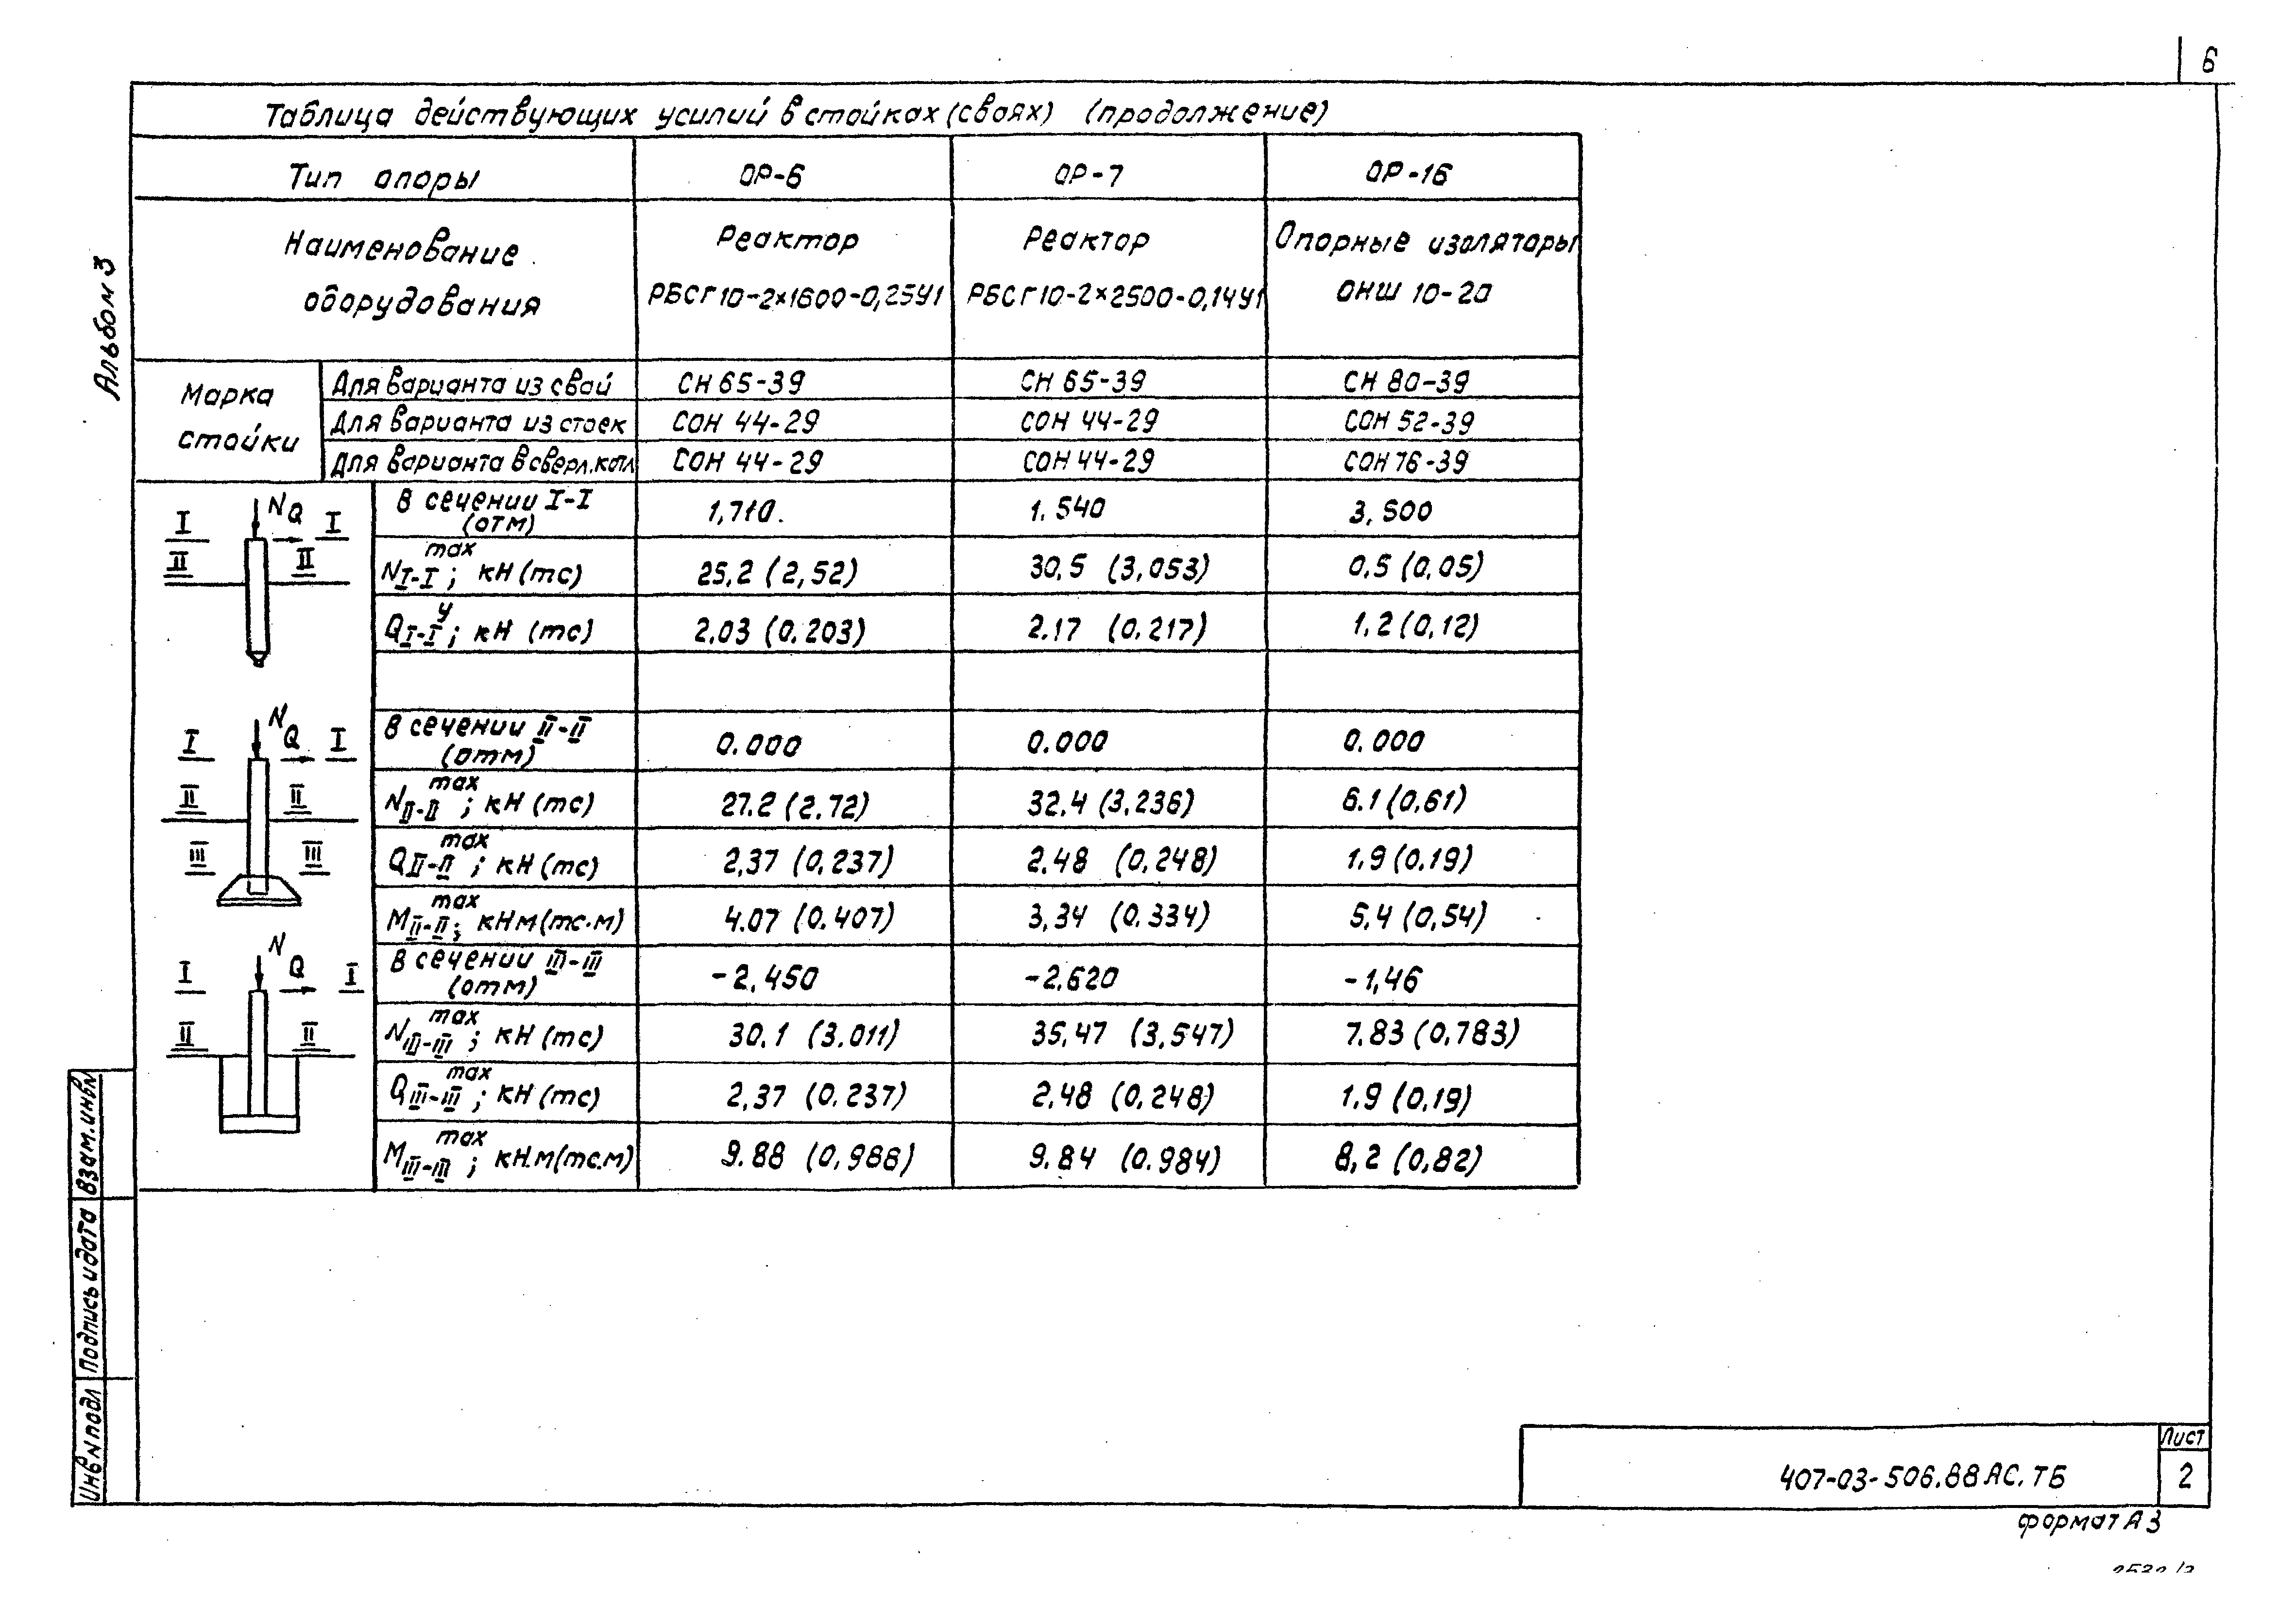 6
Таблица действующих усилий в стойках (сваях) (продолжение)
Тип опоры ОР-6 ОР-7 ОР-16
Наименование оборудования
Реактор РБСГ10-2×1600-0,25У1
Реактор РБСГ10-2×2500-0,14У1
Опорные изоляторы ОНШ 10-20
Марка стойки
Для варианта из свай СН 65-39 СН 65-39 СН 80-39
Для варианта из стоек СОН 44-29 СОН 44-29 СОН 52-39
Для варианта в сверл.котл СОН 44-29 СОН 44-29 СОН 76-39
В сечении I-I (отм) 1,710. 1.540 3,500
N I-I max; кН (тс) 25,2 (2,52) 30,5 (3,053) 0,5 (0,05)
Q I-I У; кН (тс) 2,03 (0,203) 2.17 (0,217) 1,2 (0,12)
В сечении II-II (отм) 0.000 0.000 0.000
N II-II max; кН (тс) 27.2 (2.72) 32,4 (3,236) 6.1 (0,61)
Q II-II max; кН (тс) 2,37 (0,237) 2.48 (0,248) 1,9 (0.19)
M II-II max; кНм (тс.м) 4.07 (0.407) 3,34 (0.334) 5,4 (0,54)
В сечении III-III (отм) -2,450 -2.620 -1,46
N III-III max; кН (тс) 30.1 (3.011) 35,47 (3,547) 7.83 (0,783)
Q III-III max; кН (тс) 2,37 (0.237) 2,48 (0,248) 1.9 (0,19)
M III-III max; кН.м (тс.м) 9.88 (0,988) 9.84 (0.984) 8,2 (0,82)
N
Q
I I
II II
N
Q
I I
II II
III III
N
Q
I I
II II
Альбом 3
Взам.инвN
Подпись и дата
Инв N подл
407-03-506.88 АС.ТБ
Лист
2
формат А3